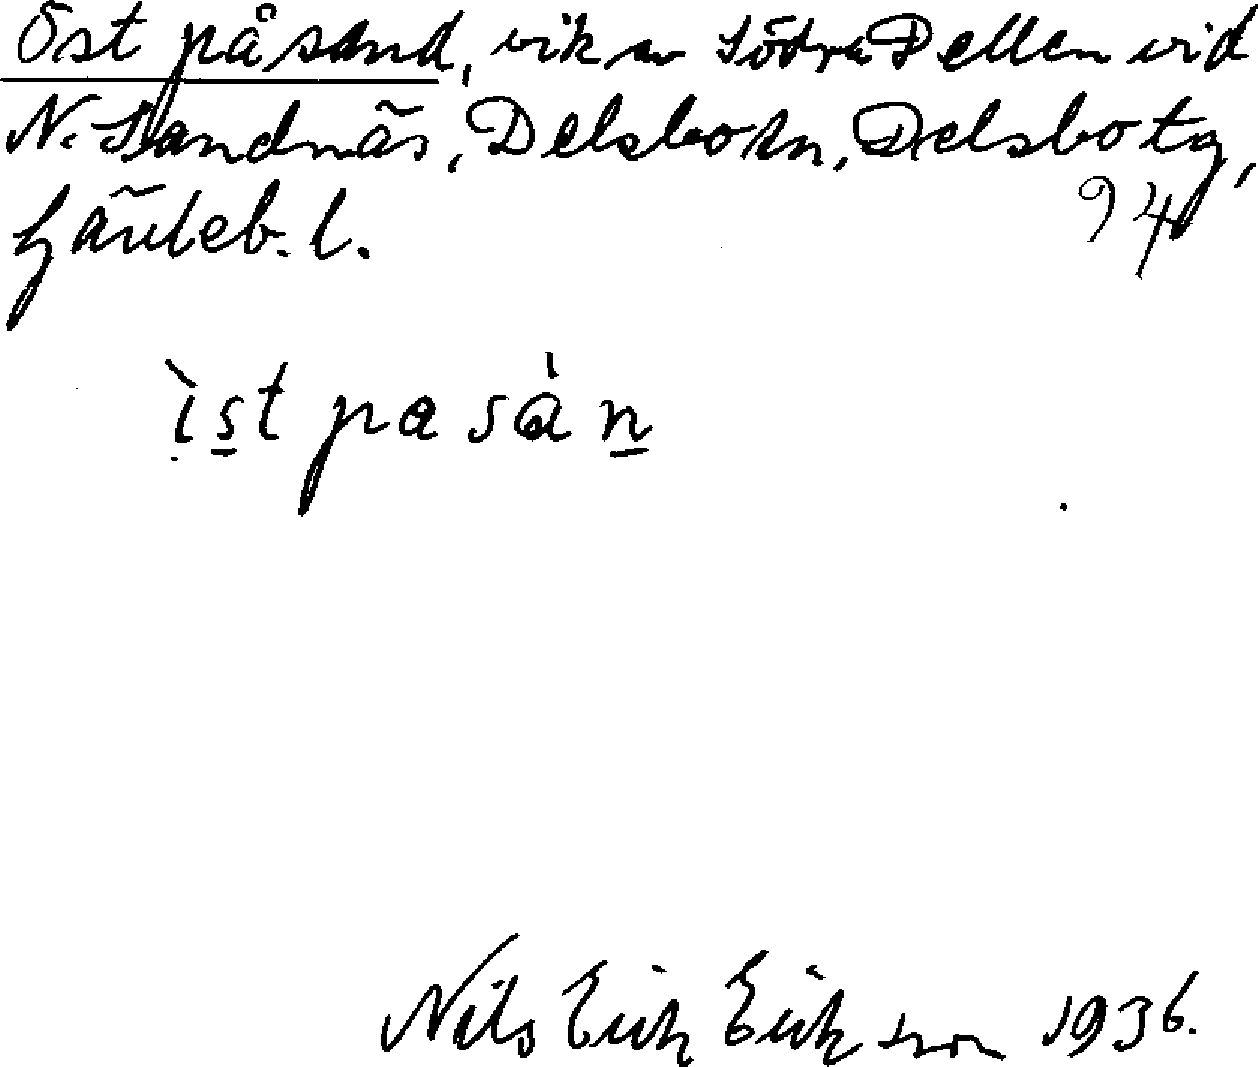 Öst på sand, vik av Södra Dellen vid
N. Sandnäs, Delsbo sn, Delsbo tg,
Gävleb. l. 94
ìs̲t pa sàn̲
Nils Erik Eriksson 1936.